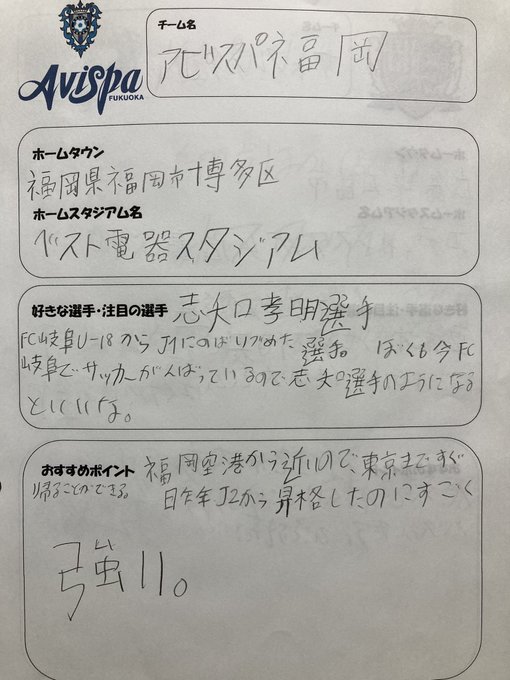 Avispa
FUKUOKA
チーム名
アビスパ福岡
ホームタウン
福岡県福岡市博多区
ホームスタジアム名
ベスト電器スタジアム
好きな選手・注目の選手 志知孝明選手
FC岐阜U-18からJ1にのぼりつめた選手。ぼくも今FC
岐阜でサッカーがんばっているので志知選手のようになる
といいな。
おすすめポイント 福岡空港から近いので、東京まですぐ
帰ることができる。昨年J2から昇格したのにすごく
強い。